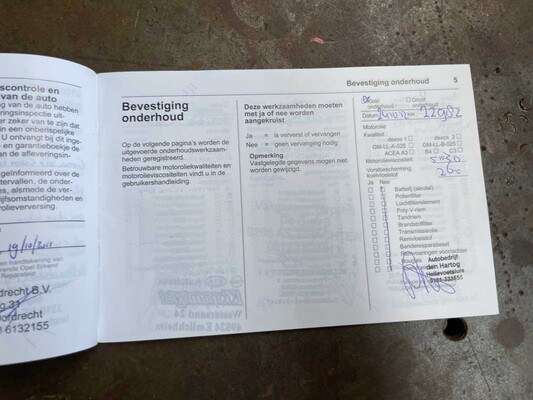 scontrole en
van de auto
ng van de auto hebben
eringsinspectie uit-
er zeker van te zijn dat
in een onberispelijke
U ontvangt bij dit inge-
- en garantieboekje de
an de afleverings-
geïnformeerd over de
ervallen, de onder-
es, alsmede de ver-
ijfsomstandigheden en
olieverversing.
19/10/
en handtekening van
Reparateur
drecht B.V.
g 31
ordrecht
6132155
Bevestiging onderhoud 5
Bevestiging
onderhoud
Op de volgende pagina's worden de
uitgevoerde onderhoudswerkzaam-
heden geregistreerd.
Betrouwbare motoroliekwaliteiten en
motorolieviscositeiten vindt u in de
gebruikershandleiding.
Deze werkzaamheden moeten
met ja of nee worden
aangekruist
Ja = is ververst of vervangen
Nee = geen vervanging nodig
Opmerking
Vastgelegde gegevens mogen niet
worden gewijzigd.
onderhoud
Datum km 12982
Motorolie
Kwaliteit dexos 1 dexos 2
GM-LL-A-025 GM-LL-B-025
ACEA A3 B4 C3
Motorolieviscositeit 5W30
Vorstbescherming
koelvloeistof 26°C
Ja Nee
Batterij (sleutel)
Pollenfilter
Luchtfilterelement
Poly-V-riem
Tandriem
Brandstoffilter
Transmissieolie
Remvloeistof
Bandenreparatieset
Bougies
Autobedrijf
den Hartog
Hellevoetsluis